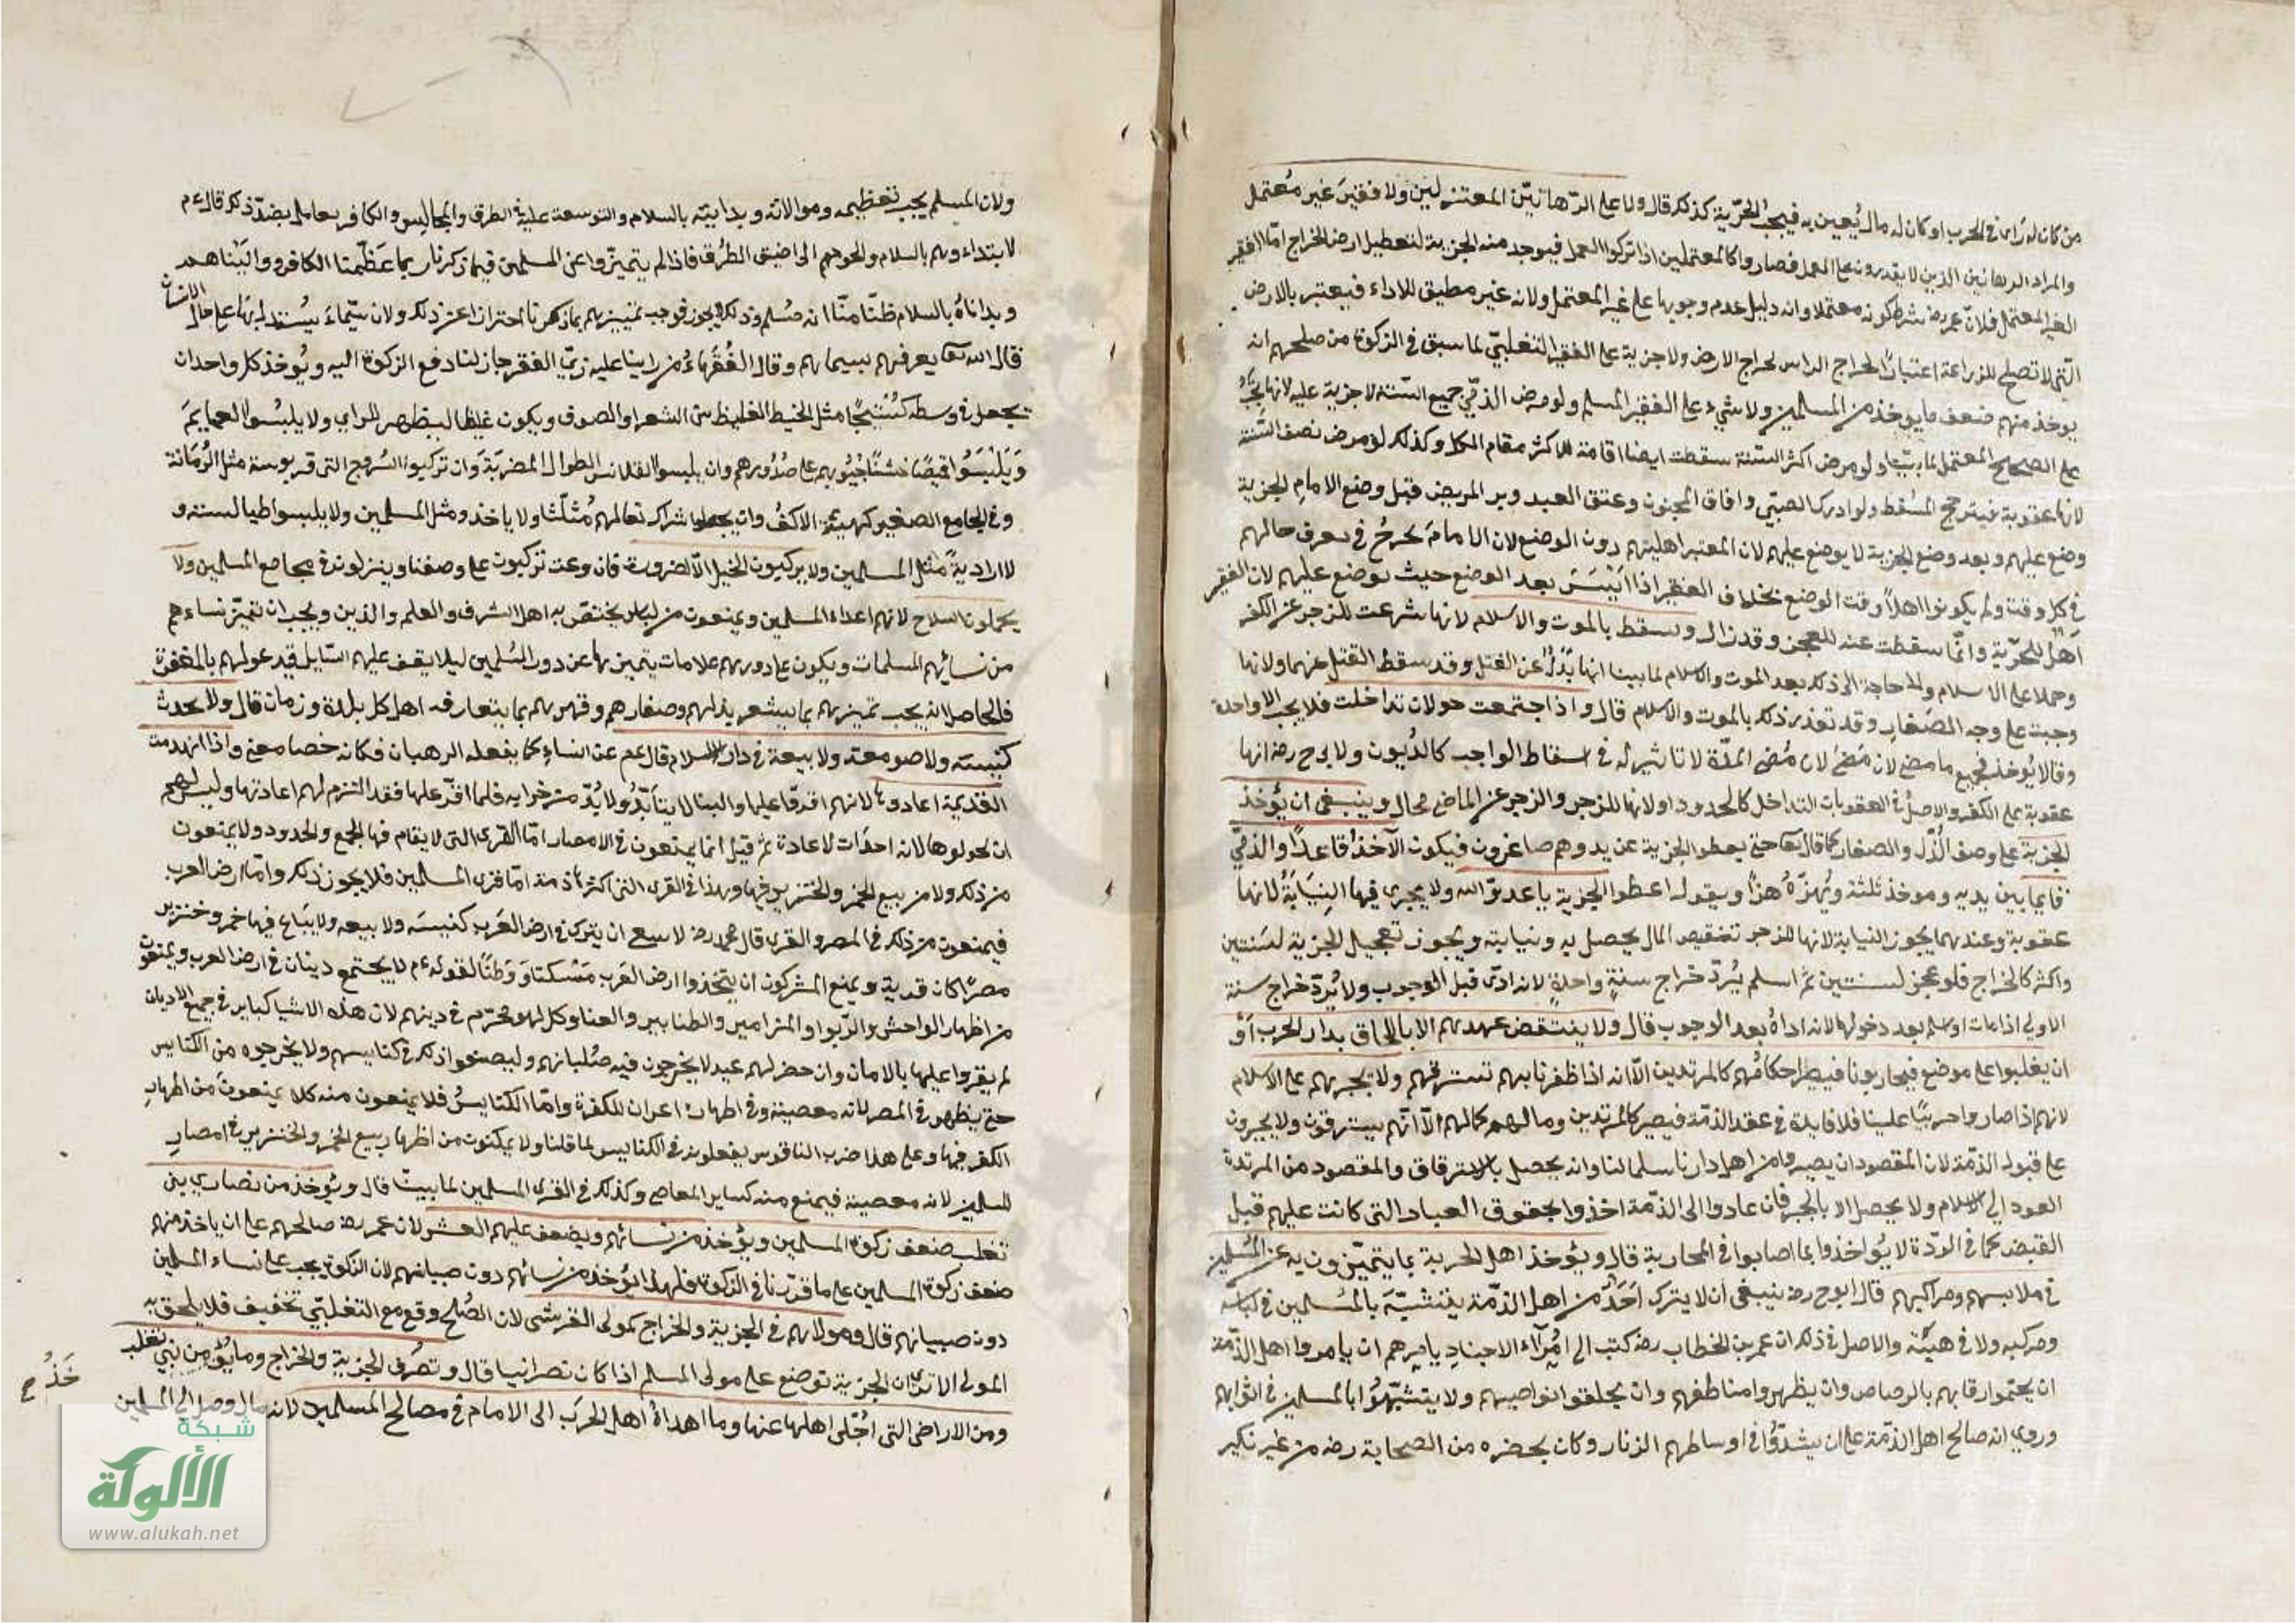 من كان له راى فى الحرب او كان له مال يعين به فيجب الجزية كذلك قال ولا على الرهابين المعتزلين ولا فقير غير معتمل
والمراد الرهابين الذين لا يقدرون على العمل فصاروا كالمعتملين اذا تركوا العمل فيوجد منه الجزية لتعطيل ارض الخراج اما الفقير
الغير المعتمل فلان عمر رضه شرط كونه معتملا وانه دليل عدم وجوبها على غير المعتمل ولانه غير مطيق للاداء فيعتبر بالارض
التى لا تصلح للزراعة اعتبارا لخراج الراس لخراج الارض ولا جزية على الفقير التغلبي لما سبق فى الزكوة من صلحهم انه
يوخذ منهم ضعف ما يوخذ من المسلمين ولا شيء على الفقير المسلم ولو مرض الذمي جميع السنة لا جزية عليه لانها يجب
على الصحيح المعتمل لما بينا ولو مرض اكثر السنة سقطت ايضا اقامة للاكثر مقام الكل وكذلك لو مرض نصف السنة
لانها عقوبة فيترجح المسقط ولو ادرك الصبي وافاق المجنون وعتق العبد وبر المريض قبل وضع الامام الجزية
وضع عليهم وبعد وضع الجزية لا يوضع عليهم لان المعتبر اهليتهم دون الوضع لان الامام يخرج فى تعرف حالهم
فى كل وقت ولم يكونوا اهلا وقت الوضع بخلاف الفقير اذا ايسر بعد الوضع حيث يوضع عليهم لان الفقير
اهل للجزية وانما سقطت عنه للعجز وقد زال وسقط بالموت والاسلام لانها شرعت للزجر عن الكفر
وحملا على الاسلام ولا حاجة الى ذلك بعد الموت والاسلام لما بينا انها بدل عن القتل وقد سقط القتل عنهما ولانها
وجبت على وجه الصغار وقد تعذر ذلك بالموت والاسلام قال واذا اجتمعت حولان تداخلت فلا يجب الا واحدة
وقالا يوخذ بجميع ما مضى لان مضى المدة لا تاثير له فى اسقاط الواجب كالديون ولابى ح رضه انها
عقوبة على الكفر والاصل فى العقوبات التداخل كالحدود او لانها للزجر والزجر عن الماضى محال وينبغى ان يؤخذ
الجزية على وصف الذل والصغار كما قال تعا حتى يعطوا الجزية عن يد وهم صاغرون فيكون الآخذ قاعدا والذمي
قايما بين يديه ويهزه هزا ويقول اعطوا الجزية يا عدو الله ولا يجرى فيها النيابة لانها
عقوبة وعندهما يجوز النيابة لانها للزجر تنقيص المال يحصل به ونيابته ويجوز تعجيل الجزية لسنتين
واكثر كالخراج فلو عجل لسنتين ثم اسلم يرد خراج سنة واحدة لانه ادى قبل الوجوب ولا يرد خراج سنة
الاولى اذا مات او اسلم بعد دخولها لانه اداه بعد الوجوب قال ولا ينتقض عهدهم الا بالالحاق بدار الحرب او
ان يغلبوا على موضع فيحاربونا فيصير احكامهم كالمرتدين الا انه اذا ظفرنا بهم نسترقهم ولا نجبرهم على الاسلام
لانهم اذا صاروا حربيا علينا فلا فايدة فى عقد الذمة فيصير كالمرتدين ومالهم كمالهم الا انهم يسترقون ولا يجبرون
على قبول الذمة لان المقصود ان يصيروا من اهل دارنا سلما لنا وانه يحصل بالاسترقاق والمقصود من المرتدة
العود الى الاسلام ولا يحصل الا بالجبر فان عادوا الى الذمة اخذوا بحقوق العباد التى كانت عليهم قبل
القبض كما فى الردة لا يؤاخذوا بما اصابوا فى المحاربة قال ويؤخذ اهل الجزية بما يتميزون به عن المسلمين
فى ملابسهم ومراكبهم قال ابو ح رضه ينبغى ان لا يترك احد من اهل الذمة يتشبه بالمسلمين فى لباسه
ومركبه ولا فى هيئته والاصل فى ذلك ان عمر بن الخطاب رضه كتب الى امرآء الاجناد يامرهم ان يامروا اهل الذمة
ان يختموا رقابهم بالرصاص وان يظهروا مناطقهم وان يحلقوا نواصيهم ولا يتشبهوا بالمسلمين فى اثوابهم
وروي انه صالح اهل الذمة على ان يشدوا فى اوساطهم الزنار وكان بحضره من الصحابة رضه من غير نكير
ولان المسلم يجب تعظيمه وموالاته وبدايته بالسلام والتوسعة عليه فى الطرق والمجالس والكافر يعامل بضد ذلك قال ءم
لا بتداءوهم بالسلام والجوهم الى اضيق الطرق فاذا لم يتميزوا عن المسلمين فيما ذكرنا ربما عظمنا الكافر وواليناهم
وبداناه بالسلام ظنا منا انه مسلم وذلك لا يجوز فوجب تمييزهم بما ذكرنا احترازا عن ذلك ولان سيماء يستدل بها على حال الانسان
قال الله تعا يعرفهم بسيماهم وقال الفقهاء من راينا عليه زي الفقر جاز لنا دفع الزكوة اليه ويؤخذ كل واحد ان
يجعل فى وسطه كستيجا مثل الخيط الغليظ من الشعر او الصوف ويكون غليظا ليظهر للراي ولا يلبسوا العمايم
ويلبسوا قميصا خشنا جيوبهم على صدورهم وان يلبسوا القلانس الطوال المضربة وان تركبوا السروج التى قربوسه مثل الرمانة
وفى الجامع الصغير كهيئة الاكف وان يجعلوا شراك نعالهم مثلثا ولا ياخذوه مثل المسلمين ولا يلبسوا طيالسته و
لا اردية مثل المسلمين ولا يركبون الخيل الا لضرورة فان وعت تركبون على وصفنا وينزلون فى مجامع المسلمين ولا
يحملون السلاح لانهم اعداء المسلمين ويمنعون من لباس يختص به اهل الشرف والعلم والدين ويجب ان تتميز نساءهم
من نسائهم المسلمات ويكون على دورهم علامات يتميز بها عن دور المسلمين ليلا يقف عليهم السايل فيدعو لهم بالمغفرة
فالحاصل انه يجب تمييزهم بما يشعر بذلهم وصغارهم وقهرهم بما يتعارفه اهل كل بلدة وزمان قال ولا يحدث
كنيسته ولا صومعة ولا بيعة فى دار الاسلام قال ءم عن النساء كما يفعله الرهبان فكانه خصا معنى واذا انهدمت
القديمة اعادوها لانهم اقروا عليها والبنا لا يتابد ولا بد من خرابه فلما اقر عليها فقد التزم لهم اعادتها وليس لهم
ان يحولوها لانه احداث لا عادة ثم قيل انما يمنعون فى الامصار اما القرى التى لا يقام فيها الجمع والحدود ولا يمنعون
من ذلك ولا من بيع الخمر والخنزير فيها وهذا فى القرى التى اكثرها ذمة اما قرى المسلمين فلا يجوز ذلك واما ارض العرب
فيمنعون من ذلك فى المصر والقرى قال محمد رضه لا يسع ان يترك فى ارض العرب كنيسة ولا بيعه ولا يباع فيها خمر وخنزير
مصرا كان قرية ويمنع المشركون ان يتخذوا ارض العرب مسكنا ووطنا لقوله ءم لا يجتمع دينان فى ارض العرب ويمنعون
من اظهار الفواحش والربوا والمزامير والطنابير والغنا وكل لهو محرم فى دينهم لان هذه الاشيا كباير فى جميع الاديان
لم يقروا عليها بالامان وان حضر لهم عيد لا يخرجون فيه صلبانهم وليصنعوا ذلك فى كنايسهم ولا يخرجوه من الكنايس
حتى يظهر فى المصر لانه معصية وفى اظهاره اعزاز للكفرة واما الكنايس فلا يمنعون منه كلا يمنعون من اظهار
الكفر فيها وعلى هذا ضرب الناقوس يفعلونه فى الكنايس لما قلنا ولا يمكنون من اظهار بيع الخمر والخنزير فى امصار
المسلمين لانه معصية فيمنع منه كساير المعاصى وكذلك فى القرى المسلمين لما بينا قال ويؤخذ من نصارى بنى
تغلب ضعف زكوة المسلمين ويؤخذ من نسائهم ويضعف عليهم العشر لان عمر رضه صالحهم على ان ياخذ منهم
ضعف زكوة المسلمين على ما قررنا فى الزكوة فلهذا يؤخذ من نسائهم دون صبيانهم لان الزكوة يجب على نساء المسلمين
دون صبيانهم قال ومولاهم فى الجزية والخراج كمولى القرشى لان الصلح وقع مع التغلبي تخفيف فلا يلحق به
المولى الا ترى ان الجزية توضع على مولى المسلم اذا كان نصرانيا قال وتصرف الجزية والخراج وما يؤخذ من بنى تغلب
ومن الاراضى التى اجلى اهلها عنها وما اهداه اهل الحرب الى الامام فى مصالح المسلمين لانه مال وصل الى المسلمين
شبكة
الألوكة
www.alukah.net